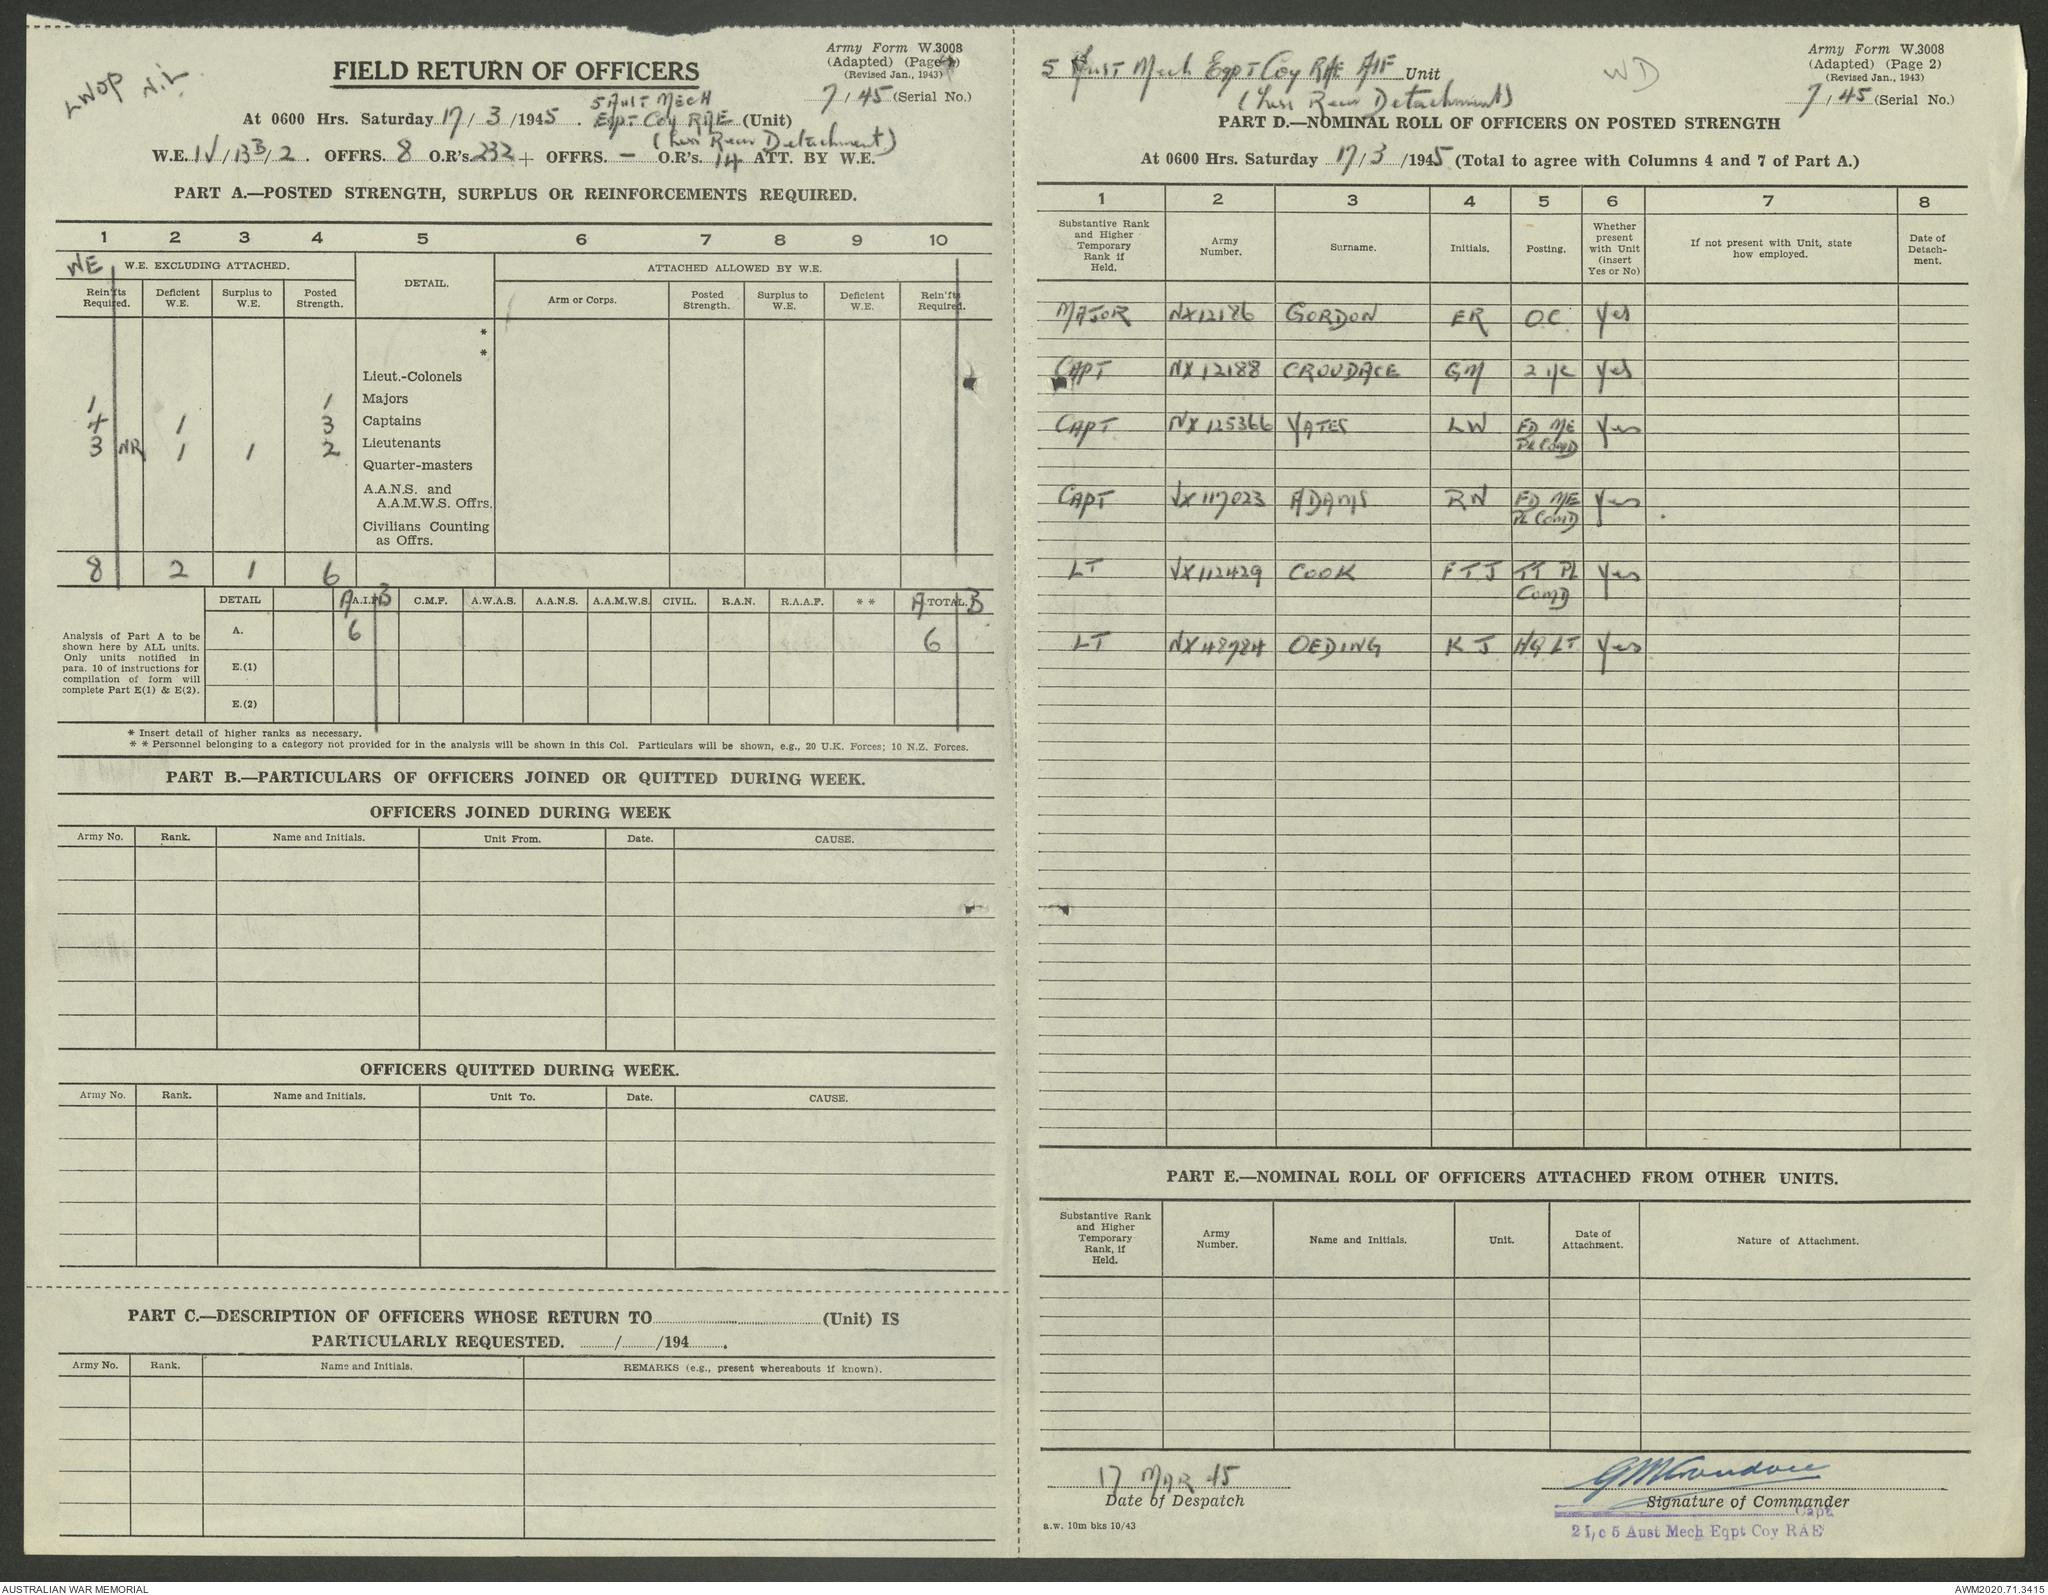 LWOP Nil
Army Form W.3008
(Adapted) (Page 1)
(Revised Jan., 1943)
FIELD RETURN OF OFFICERS
7/45 (Serial No.)
At 0600 Hrs. Saturday 17/3/1945. 5 Aust Mech Eqpt Coy RAE (Unit)
(Less Rear Detachment)
W.E. IV/13B/2. OFFRS. 8 O.R's. 232 + OFFRS. — O.R's. 14 ATT. BY W.E.
PART A.—POSTED STRENGTH, SURPLUS OR REINFORCEMENTS REQUIRED.
1 2 3 4 5 6 7 8 9 10
WE W.E. EXCLUDING ATTACHED. DETAIL. ATTACHED ALLOWED BY W.E.
Rein'fts Required. Deficient W.E. Surplus to W.E. Posted Strength. Arm or Corps. Posted Strength. Surplus to W.E. Deficient W.E. Rein'fts Required.
*
*
Lieut.-Colonels
1 1 Majors
4 1 3 Captains
3 NR 1 1 2 Lieutenants
Quarter-masters
A.A.N.S. and
A.A.M.W.S. Offrs.
Civilians Counting
as Offrs.
8 2 1 6
DETAIL A A.I.F. B C.M.F. A.W.A.S. A.A.N.S. A.A.M.W.S. CIVIL. R.A.N. R.A.A.F. ** A TOTAL. B
A. 6 6
E.(1)
E.(2)
Analysis of Part A to be
shown here by ALL units.
Only units notified in
para. 10 of instructions for
compilation of form will
complete Part E(1) & E(2).
* Insert detail of higher ranks as necessary.
* * Personnel belonging to a category not provided for in the analysis will be shown in this Col. Particulars will be shown, e.g., 20 U.K. Forces; 10 N.Z. Forces.
PART B.—PARTICULARS OF OFFICERS JOINED OR QUITTED DURING WEEK.
OFFICERS JOINED DURING WEEK
Army No. Rank. Name and Initials. Unit From. Date. CAUSE.
OFFICERS QUITTED DURING WEEK.
Army No. Rank. Name and Initials. Unit To. Date. CAUSE.
PART C.—DESCRIPTION OF OFFICERS WHOSE RETURN TO (Unit) IS
PARTICULARLY REQUESTED. / /194 .
Army No. Rank. Name and Initials. REMARKS (e.g., present whereabouts if known).
Army Form W.3008
(Adapted) (Page 2)
(Revised Jan., 1943)
5 Aust Mech Eqpt Coy RAE AIF Unit
(Less Rear Detachment)
WD
7/45 (Serial No.)
PART D.—NOMINAL ROLL OF OFFICERS ON POSTED STRENGTH
At 0600 Hrs. Saturday 17/3/1945 (Total to agree with Columns 4 and 7 of Part A.)
1 2 3 4 5 6 7 8
Substantive Rank and Higher Temporary Rank if Held. Army Number. Surname. Initials. Posting. Whether present with Unit (insert Yes or No) If not present with Unit, state how employed. Date of Detach-ment.
MAJOR NX12186 GORDON ER OC Yes
CAPT NX12188 CROUDACE GM 2 I/C Yes
CAPT NX125366 YATES LW FD ME PL COMD Yes
CAPT VX117023 ADAMS RN FD ME PL COMD Yes
LT VX112429 COOK FTJ TT PL COMD Yes
LT NX48784 OEDING KJ HQ LT Yes
PART E.—NOMINAL ROLL OF OFFICERS ATTACHED FROM OTHER UNITS.
Substantive Rank and Higher Temporary Rank, if Held. Army Number. Name and Initials. Unit. Date of Attachment. Nature of Attachment.
17 MAR 45
Date of Despatch
GM Croudace
Signature of Commander
Capt
2 I/c 5 Aust Mech Eqpt Coy RAE
a.w. 10m bks 10/43
AUSTRALIAN WAR MEMORIAL
AWM2020.71.3415